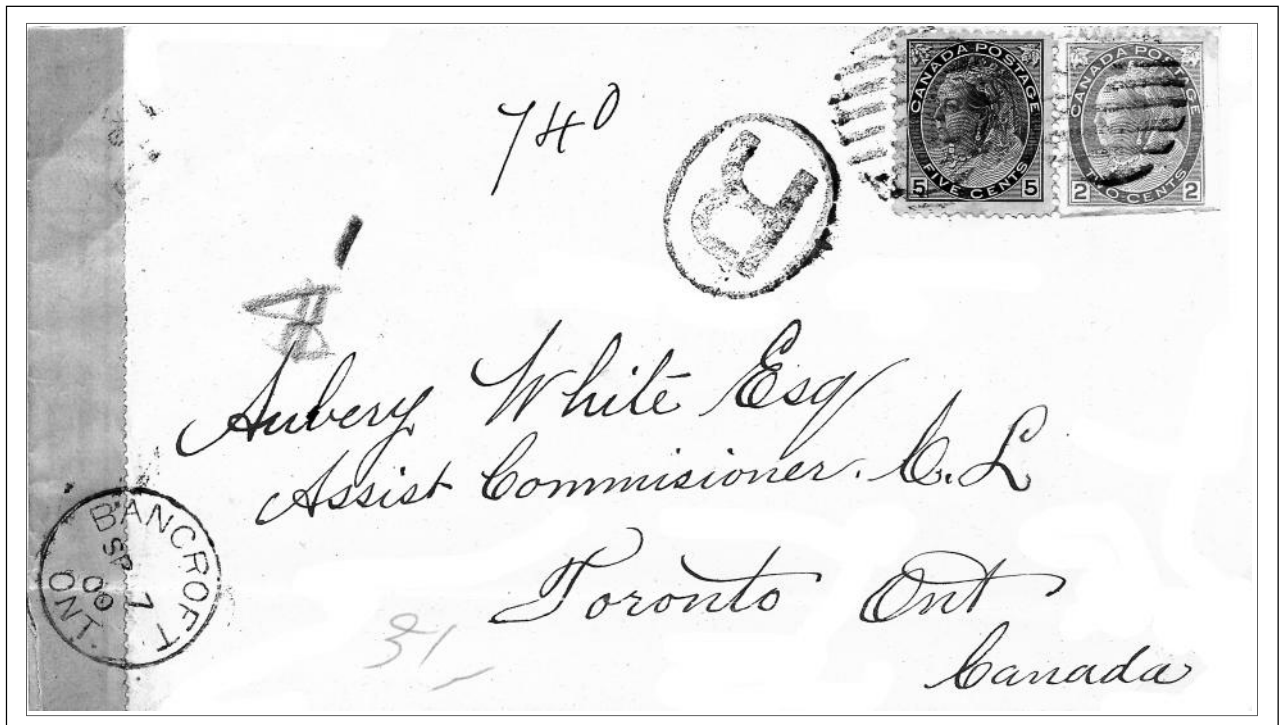 740
R
CANADA POSTAGE
5 FIVE CENTS 5
CANADA POSTAGE
2 TWO CENTS 2
Aubery White Esq
Assist Commisioner. C. L
Toronto Ont
Canada
BANCROFT
SP 7
00
ONT.
31